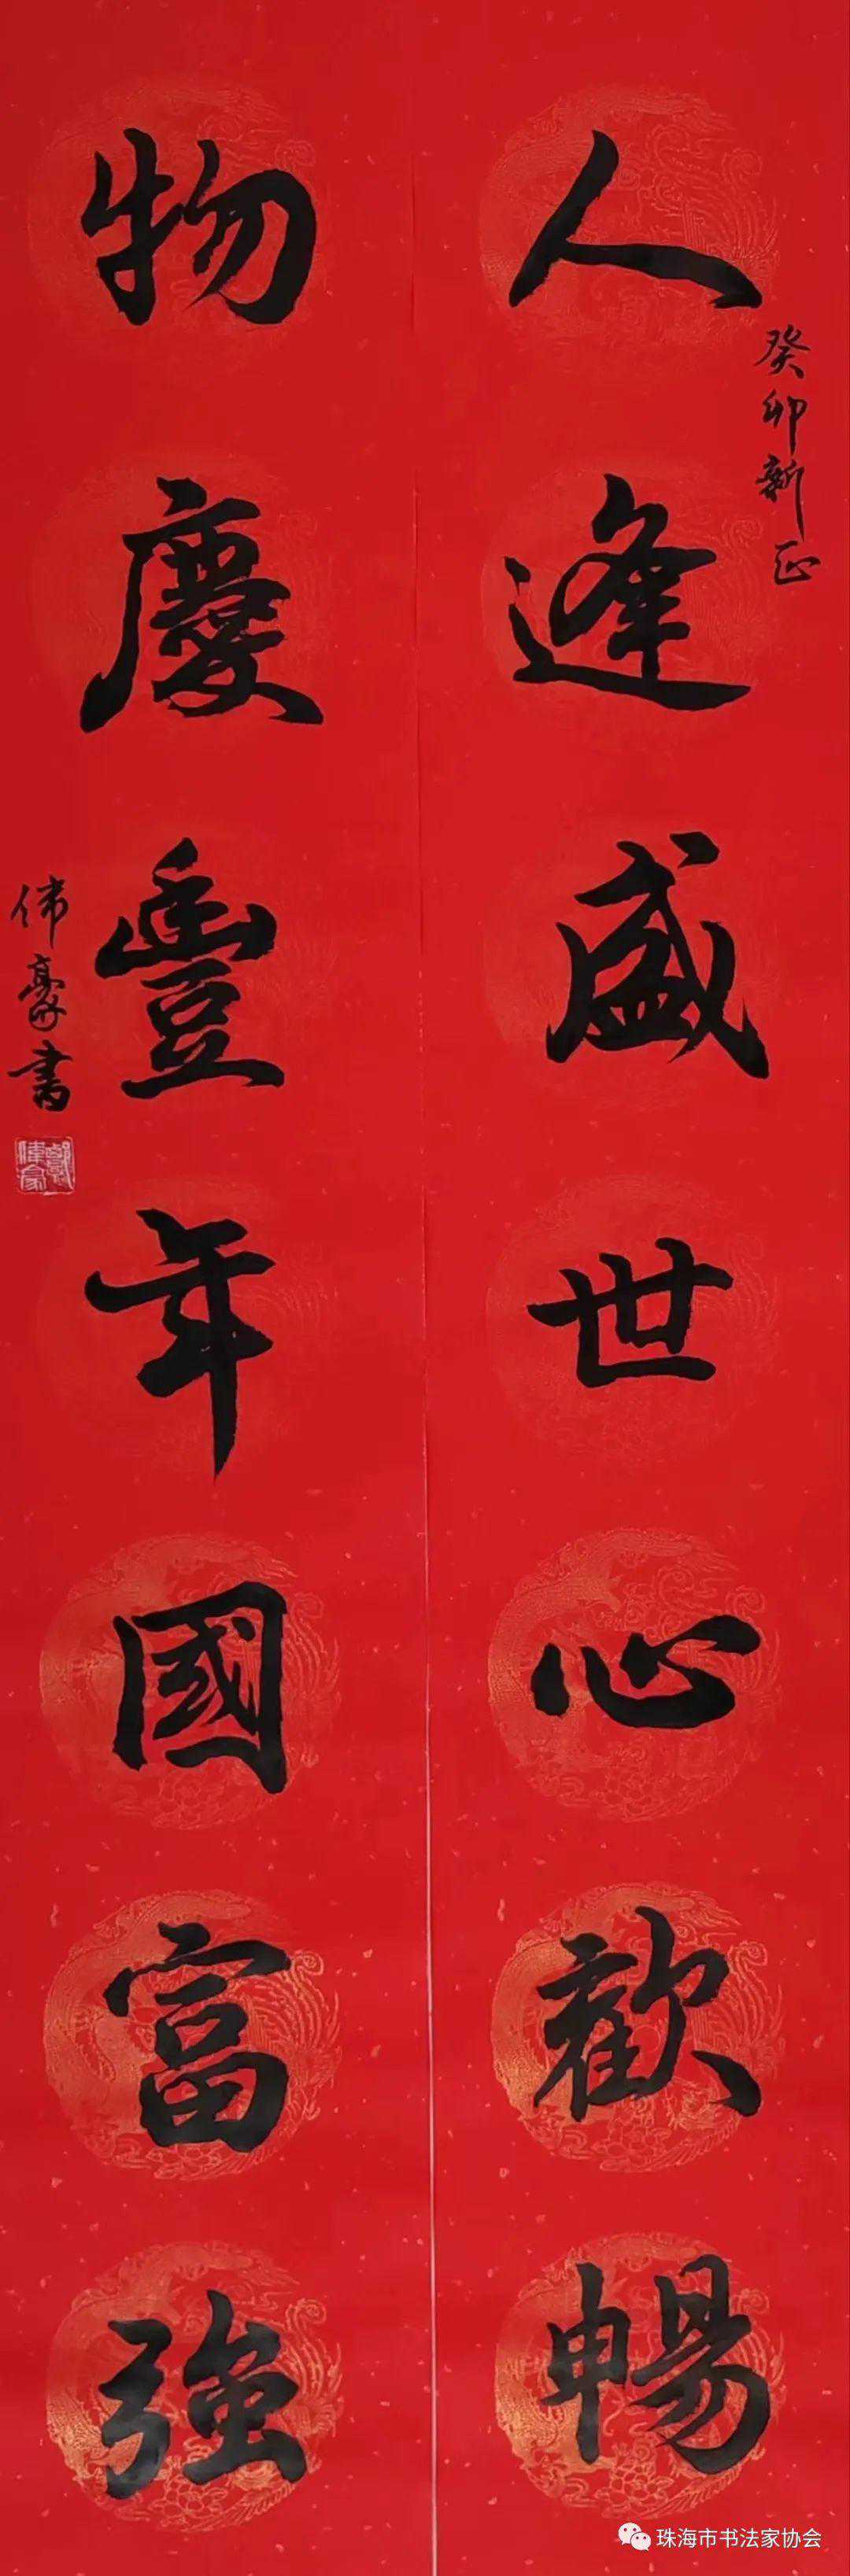 人逢盛世心歡暢
癸卯新正
物慶豐年國富強
偉豪書
珠海市书法家协会